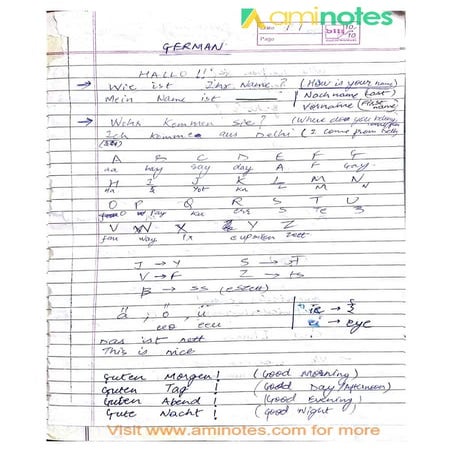 aminotes
Date
Page
GERMAN
HALLO !!
→ Wie ist Ihr Name? (How is your name)
Mein Name ist ______ Nachname (Last)
Vorname (First name)
→ Woher Kommen Sie? (Where do you
Ich komme aus Delhi (I come from Delhi
A B C D E F G
aa bay say day A F Gay
H I J K L M N
ha Yot Ka L M N
O P Q R S T U
Pay Ku S Te
V W X Y Z
fau way ix zett
J → Y S →
V → F Z → ts
ß → ss (eszett)
ä , ö , ü
ie →
ei → eye
Das ist nett
This is nice
Guten Morgen! (Good Morning)
Guten Tag! (Good Day/Afternoon)
Guten Abend! (Good Evening)
Gute Nacht! (Good Night)
Visit www.aminotes.com for more